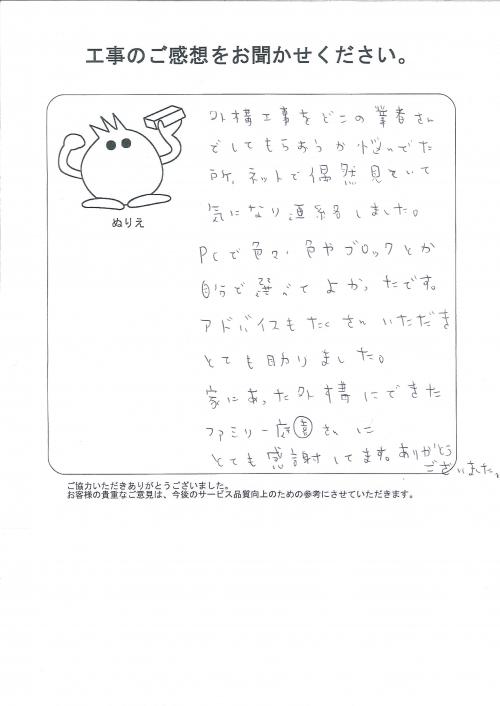 工事のご感想をお聞かせください。
外構工事をどこの業者さん
でしてもらおうか悩んでた
所、ネットで偶然見ていて
気になり連絡しました。
PCで色々、色やブロックとか
自分で選べてよかったです。
アドバイスもたくさんいただき
とても助りました。
家にあった外構にできた
ファミリー庭園さんに
とても感謝してます。ありがとう
ございました。
ぬりえ
ご協力いただきありがとうございました。
お客様の貴重なご意見は、今後のサービス品質向上のための参考にさせていただきます。